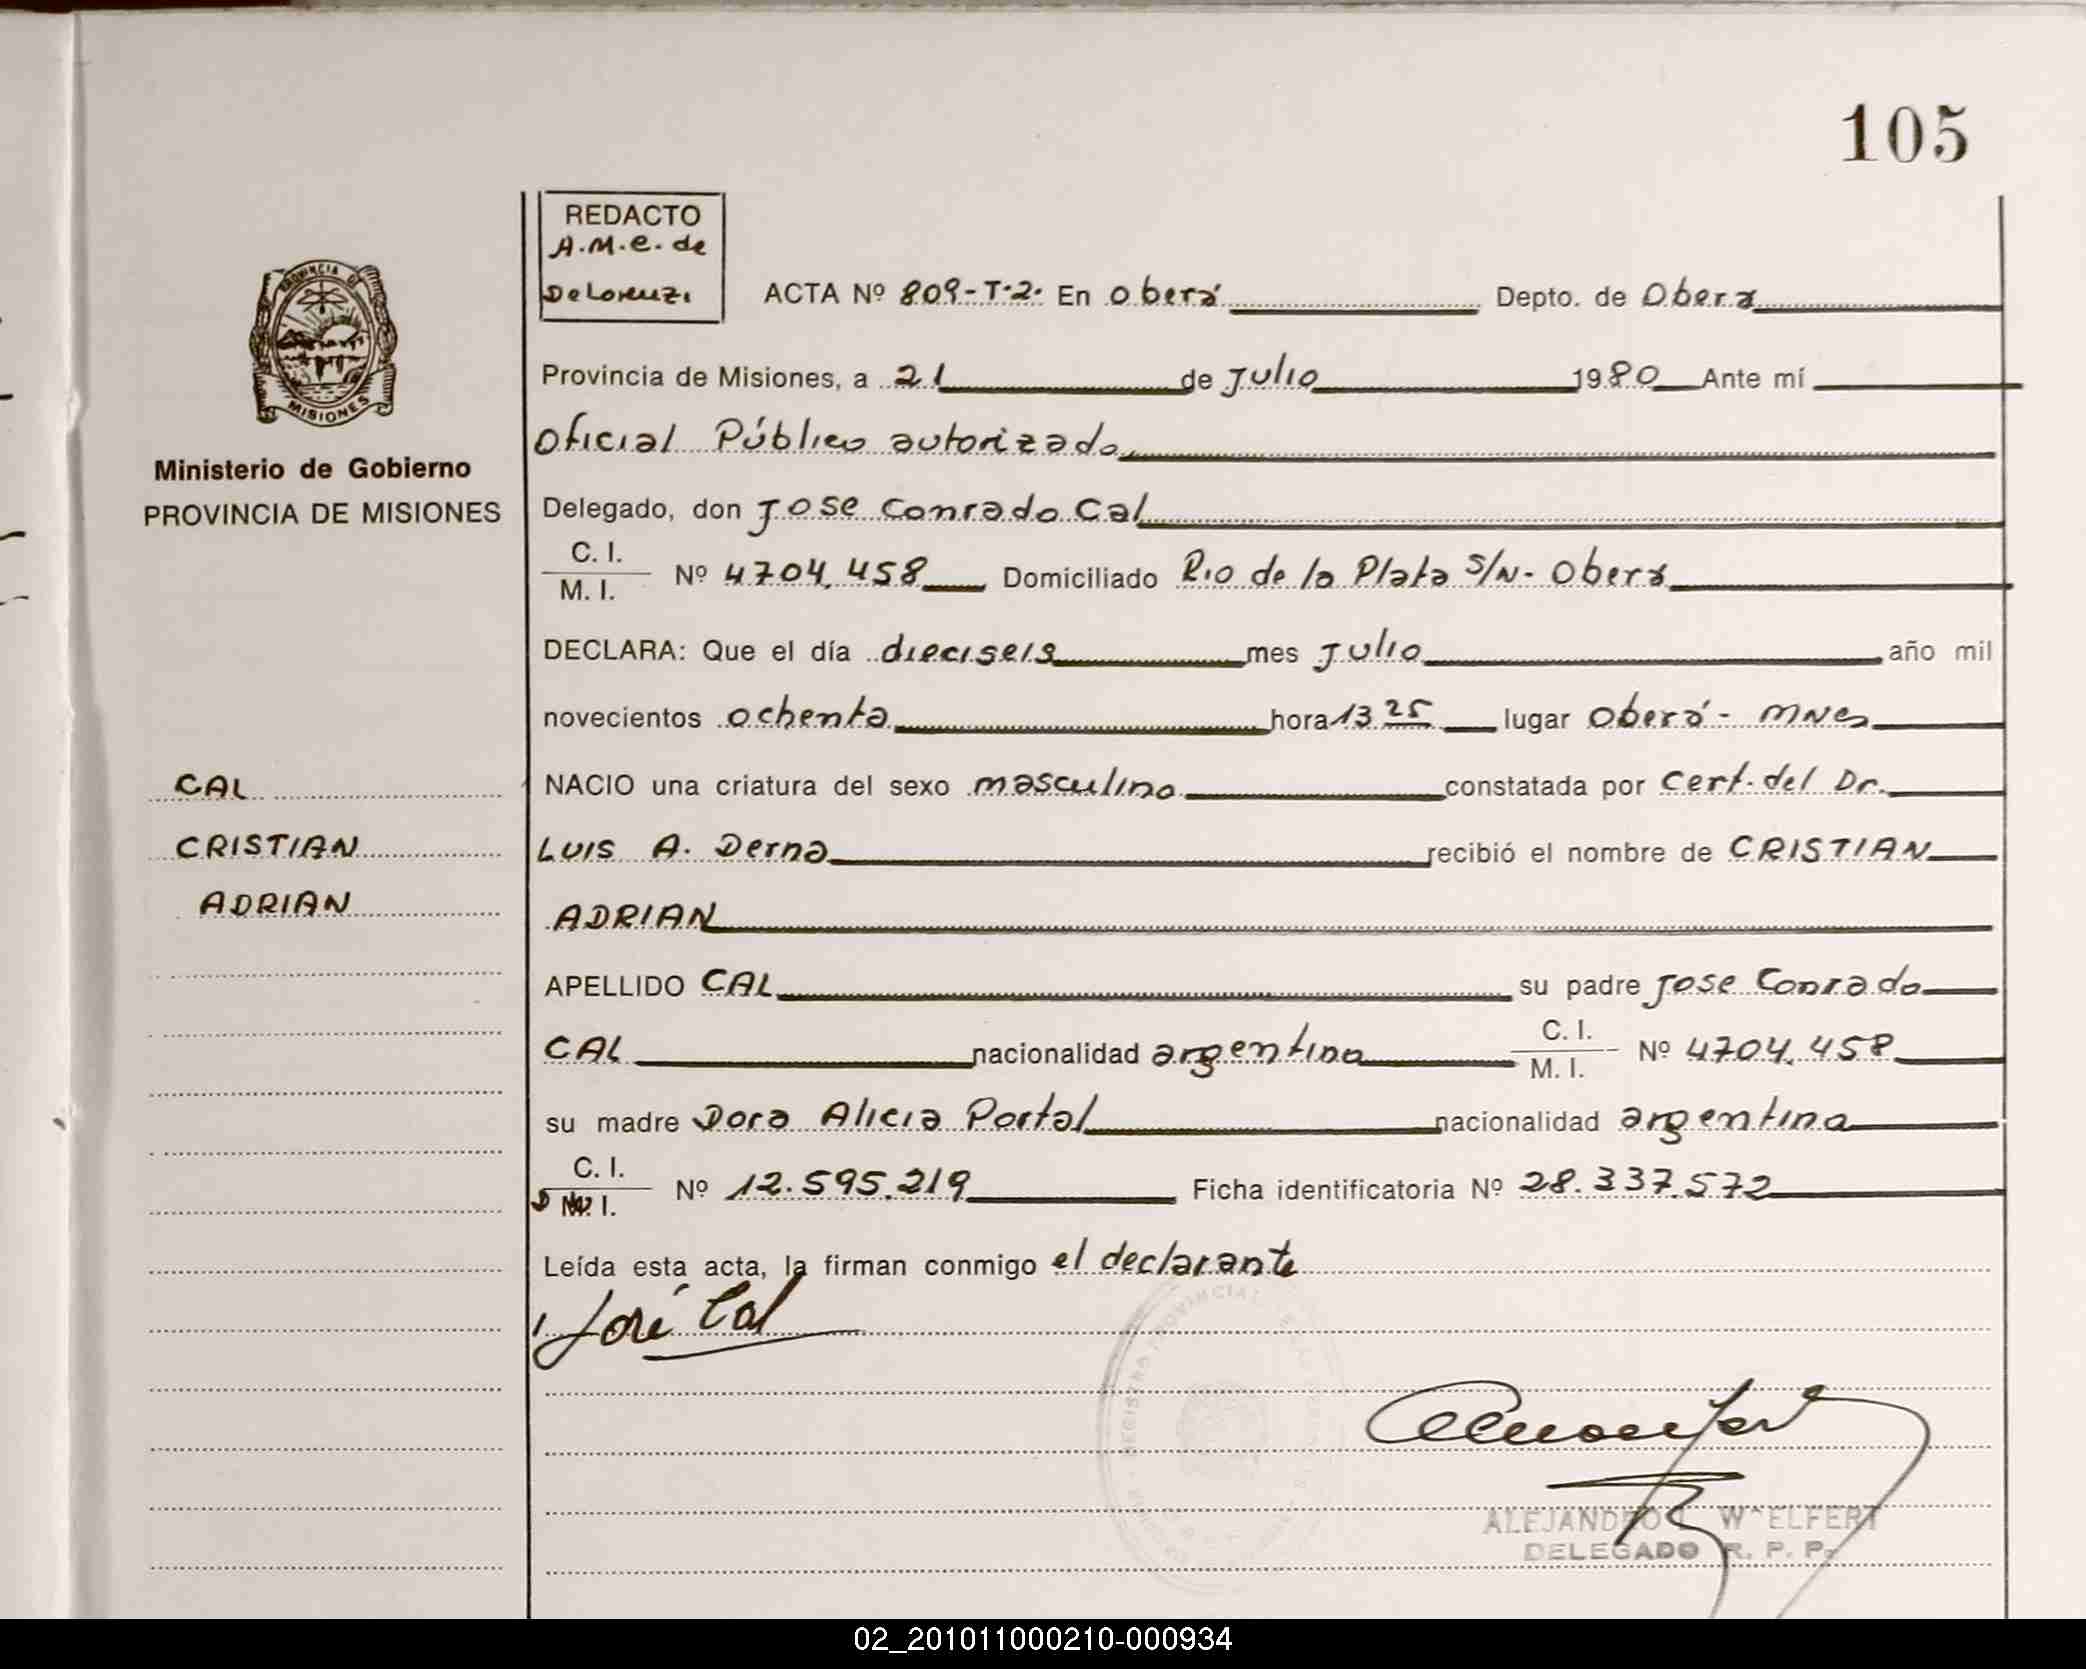 105
REDACTO
A.M.E. de
DeLorenzi
ACTA Nº 809-T.2. En Oberá Depto. de Oberá
Provincia de Misiones, a 21 de Julio 1980 Ante mí
Oficial Público autorizado
PROVINCIA DE
MISIONES
Ministerio de Gobierno
PROVINCIA DE MISIONES
Delegado, don Jose Conrado Cal
C. I.
M. I. Nº 4704.458 Domiciliado Rio de la Plata S/N- Oberá
DECLARA: Que el día dieciseis mes Julio año mil
novecientos ochenta hora 13.25 lugar Oberá - MNes
CAL
CRISTIAN
ADRIAN
NACIO una criatura del sexo masculino constatada por Cert. del Dr.
Luis A. Derna recibió el nombre de CRISTIAN
ADRIAN
APELLIDO CAL su padre Jose Conrado
CAL nacionalidad argentina C. I.
M. I. Nº 4704.458
su madre Dora Alicia Portal nacionalidad argentina
C. I.
D N. I. Nº 12.595.219 Ficha identificatoria Nº 28.337.572
Leída esta acta, la firman conmigo el declarante
José Cal
ALEJANDRO W ELFERT
DELEGADO R. P. P.
02_201011000210-000934